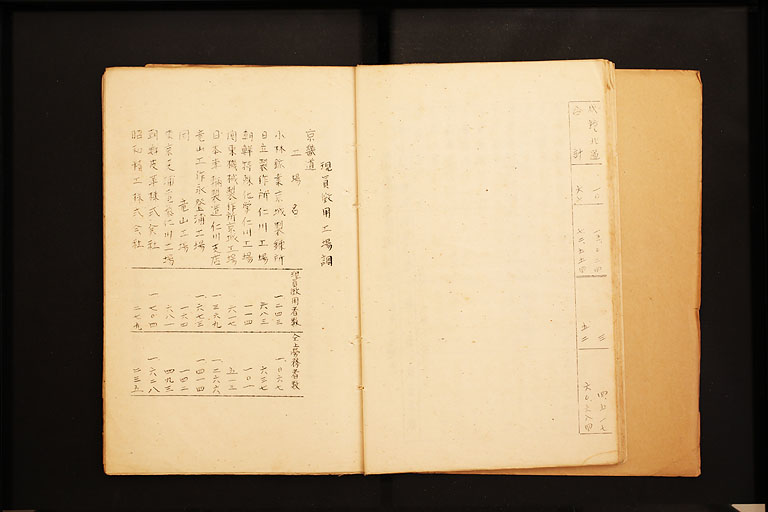 咸鏡北道
合計
現員徴用工場調
京畿道
工場名
現員徴用者数
仝上労務者数
小林鉱業京城製錬所 一二四三 一〇六七
日立製作所仁川工場 六八三 六三七
朝鮮特殊化学仁川工場 一一四 一〇一
関東機械製作所京城工場 六一七 五一三
日本車輛製造仁川支店 一三六九 一二六六
龍山工作永登浦工場 一六七三 一四一四
同 龍山工場 一六四 一四二
東京芝浦電気仁川工場 六八一 四九三
朝鮮皮革株式会社 一七〇四 一六二八
昭和精工株式会社 二七九 二三五